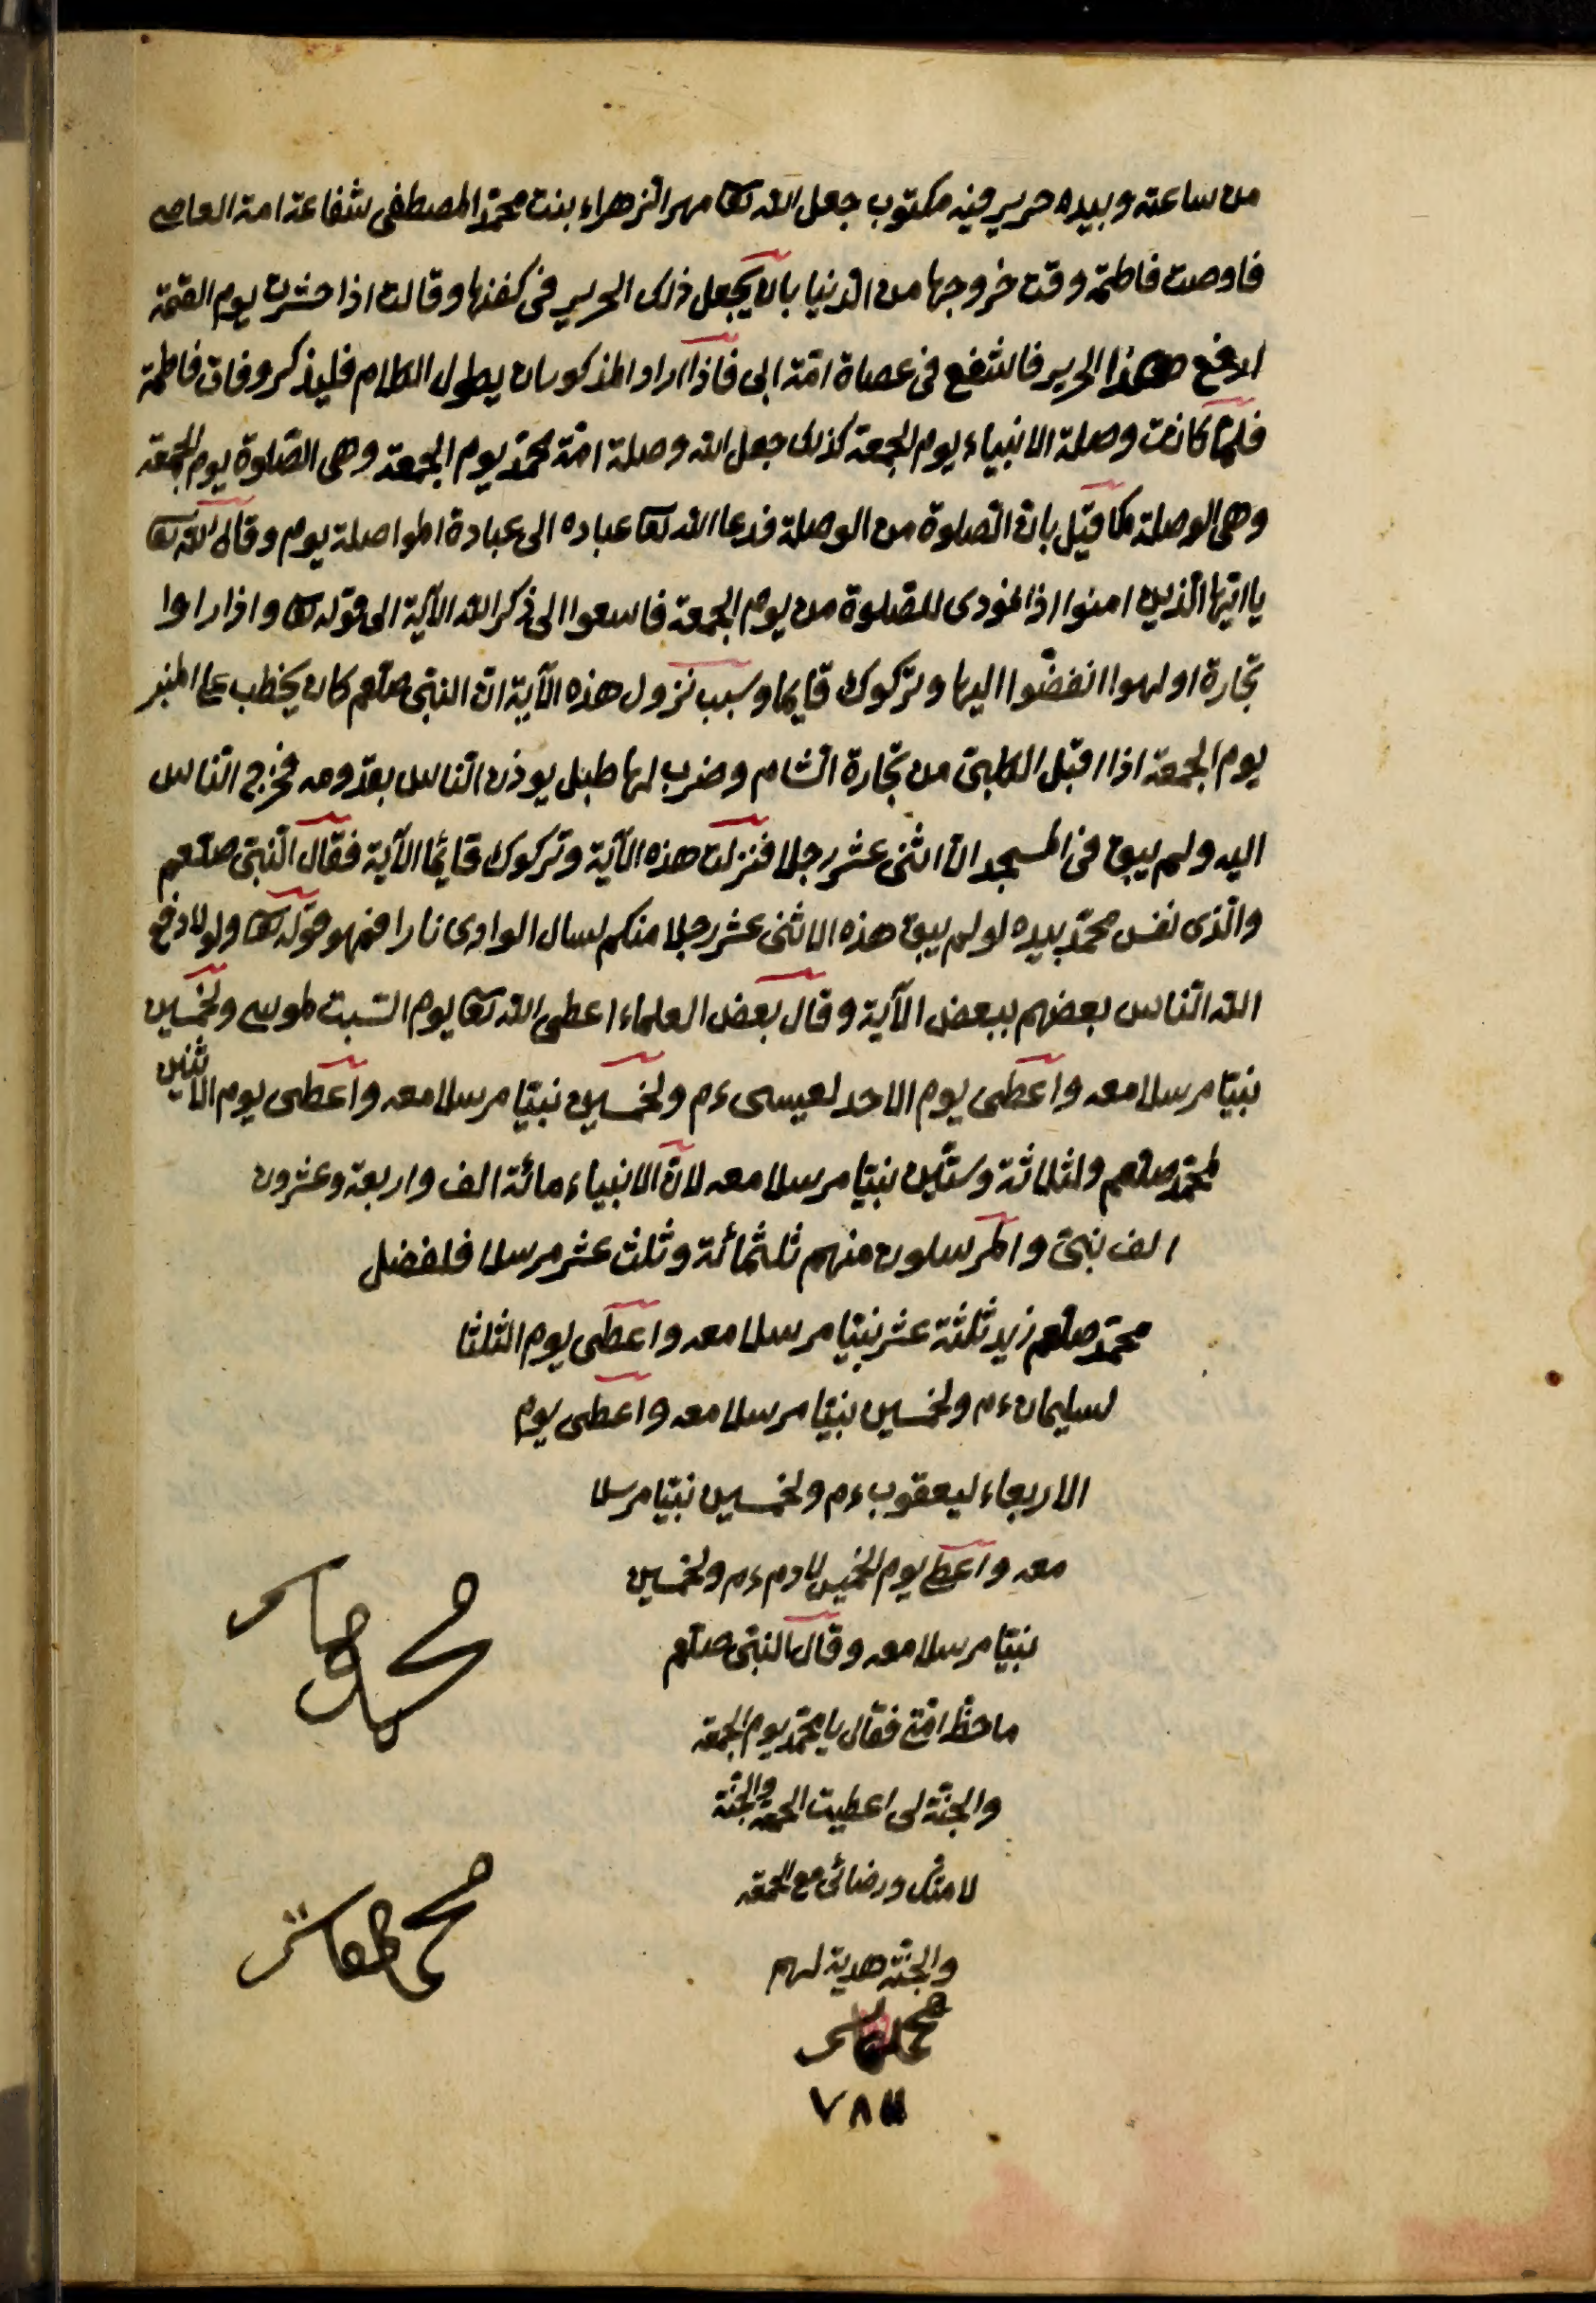 من ساعته وبيده حرير فيه مكتوب جعل الله تعا مهر الزهراء بنت محمد المصطفى شفاعة امته العاصى
فاوصت فاطمة وقت خروجها من الدنيا بان يجعل ذلك الحرير فى كفنها وقالت اذا حشرت يوم القيمة
ارفع هذا الحرير فاشفع فى عصاة امة ابى فاذا اراد المذكور ان يطول الكلام فليذكر وفات فاطمة
فلما كانت وصلة الانبياء يوم الجمعة كذلك جعل الله وصلة امة محمد يوم الجمعة وهى الصلوة يوم الجمعة
وهى الوصلة كما قيل بان الصلوة من الوصلة فدعا الله تعا عباده الى عبادة المواصلة يوم وقال الله تعا
يا ايها الذين امنوا اذا نودى للصلوة من يوم الجمعة فاسعوا الى ذكر الله الآية الى قوله تعا واذا راوا
تجارة او لهوا انفضّوا اليها وتركوك قايما وسبب نزول هذه الآية ان النبى صلعم كان يخطب على المنبر
يوم الجمعة اذا اقبل الكلبى من تجارة الشام وضرب لها طبل يوذن الناس بقدومه فخرج الناس
اليه ولم يبق فى المسجد الا اثنى عشر رجلا فنزلت هذه الآية وتركوك قائما الآية فقال النبى صلعم
والذى نفس محمد بيده لو لم يبق هذه الاثنى عشر رجلا منكم لسال الوادى نارا فهو قوله تعا ولولا دفع
الله الناس بعضهم ببعض الآية وقال بعض العلماء اعطى الله تعا يوم السبت لموسى ولخمسين
نبيا مرسلا معه واعطى يوم الاحد لعيسى ءم ولخمسين نبيا مرسلا معه واعطى يوم الاثنين
لمحمد صلعم ولثلاثة وستين نبيا مرسلا معه لان الانبياء مائة الف واربعة وعشرون
الف نبى والمرسلون منهم ثلثمائة وثلث عشر مرسلا فلفضل
محمد صلعم زيد ثلثة عشر نبيا مرسلا معه واعطى يوم الثلثا
لسليمان ءم ولخمسين نبيا مرسلا معه واعطى يوم
الاربعاء ليعقوب ءم ولخمسين نبيا مرسلا
معه واعطى يوم الخميس لادم ءم ولخمسين
نبيا مرسلا معه وقال النبى صلعم
ما حظ امتى فقال يا محمد يوم الجمعة
والجنة لى اعطيت الجمعة والجنة
لامتك ورضائى مع الجمعة
والجنة هدية لهم